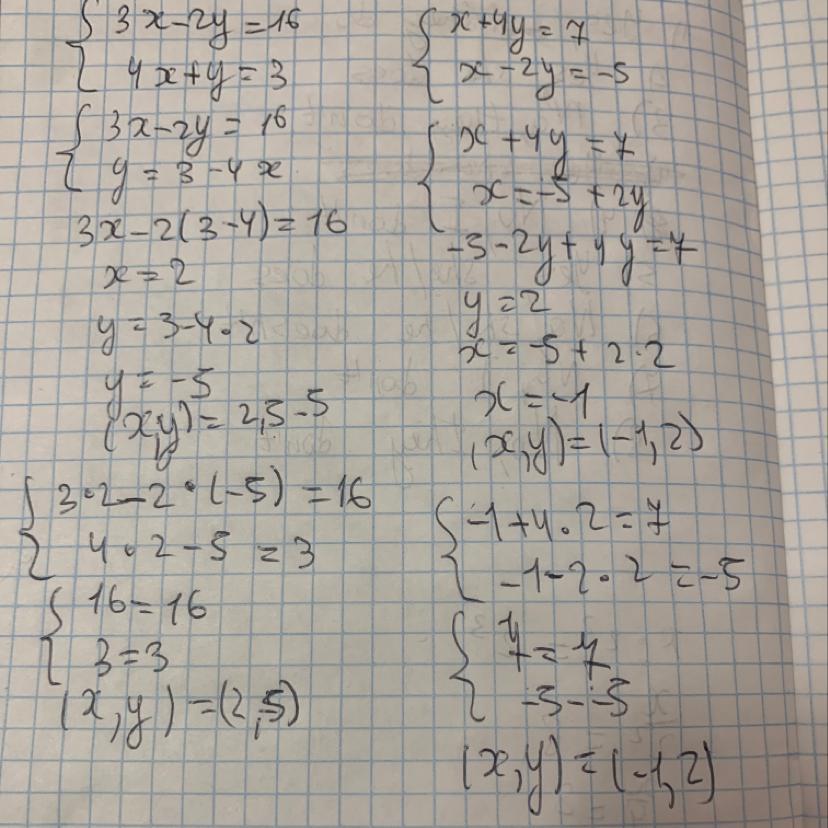 3x-2y=16
4x+y=3
3x-2y=16
y=3-4x
3x-2(3-4)=16
x=2
y=3-4·2
y=-5
(x,y)=2,5-5
3·2-2·(-5)=16
4·2-5=3
16=16
3=3
(x,y)=(2,-5)
x+4y=7
x-2y=-5
x+4y=7
x=-5+2y
-3-2y+4y=7
y=2
x=-5+2·2
x=-1
(x,y)=(-1,2)
-1+4·2=7
-1-2·2=-5
7=7
-5--5
(x,y)=(-1,2)